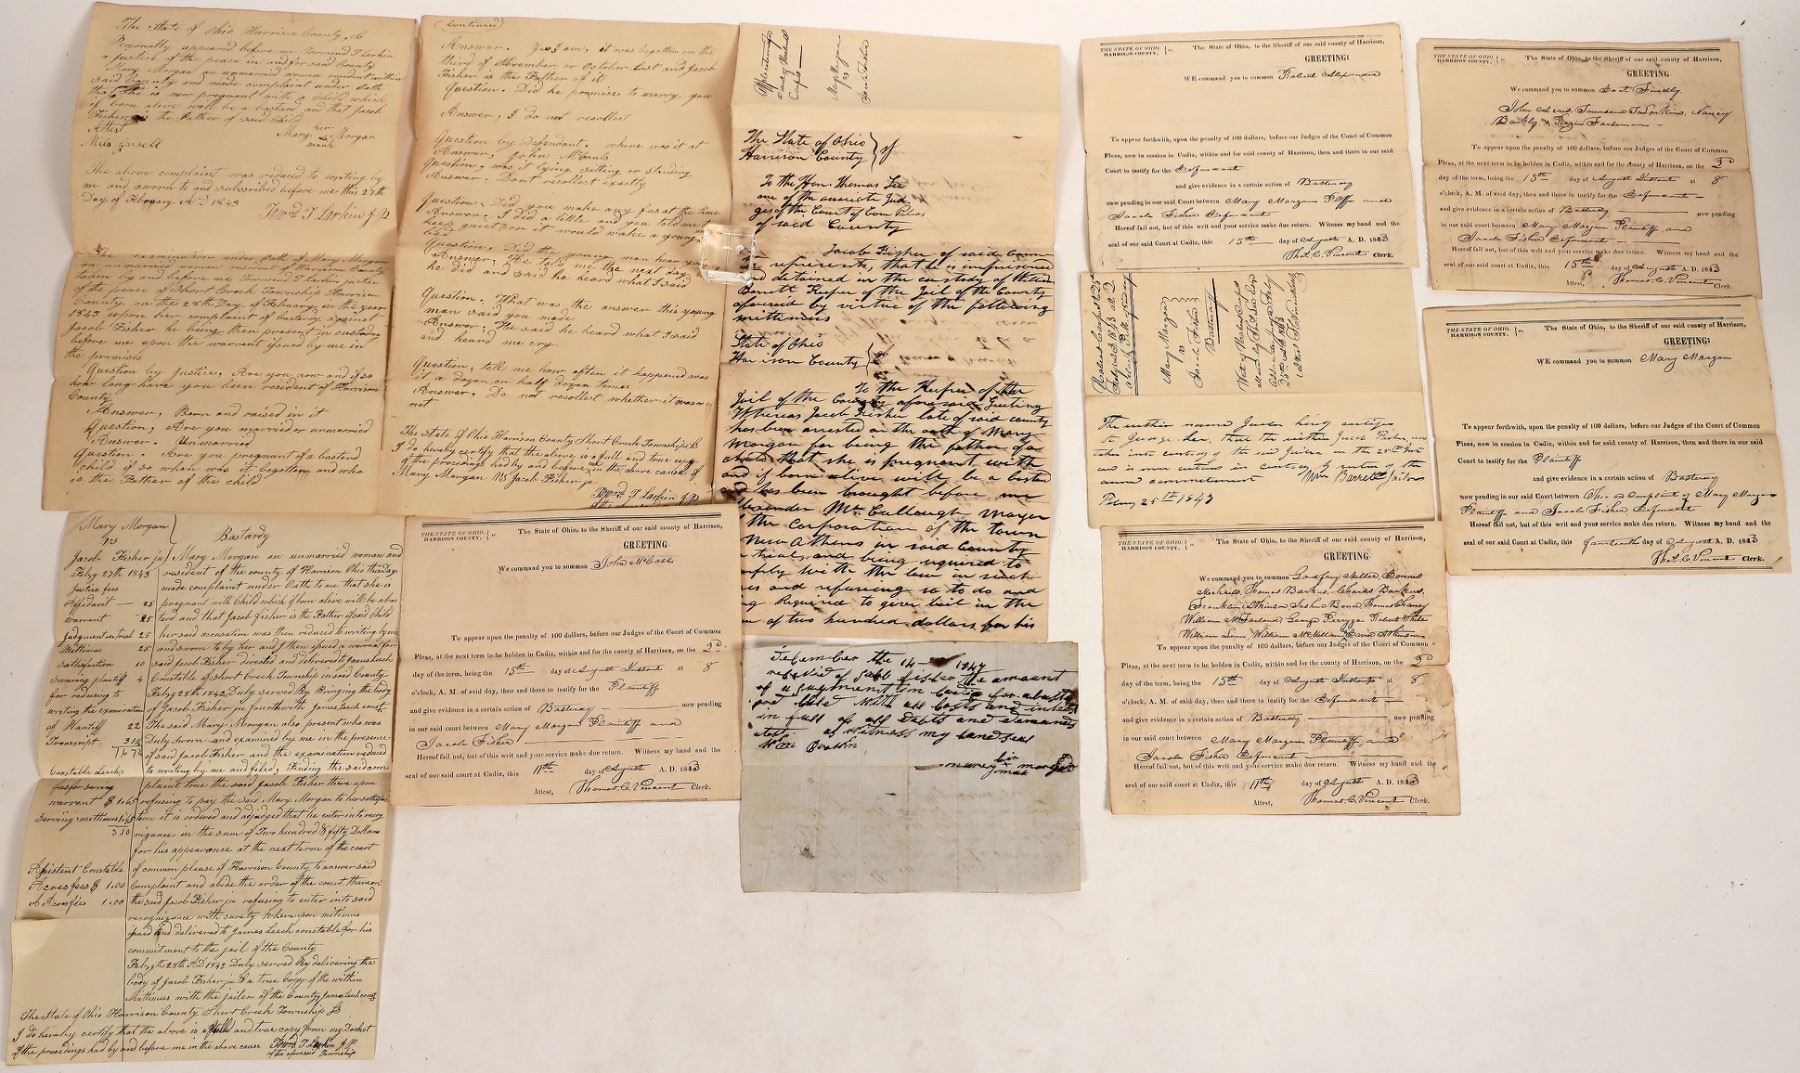 The State of Ohio Harrison County, ss
Personally appeared before me Townsend T Larkin
a justice of the peace in and for said County
Mary Morgan an unmarried woman resident within
said County and made complaint under oath
that she is now pregnant with a child which
if born alive will be a bastard and that Jacob
Fisher is the Father of said child
Attest
her
Mary Morgan
mark
The above complaint was reduced to writing by
me and sworn to and subscribed before me this 27th
day of February AD 1843
Townd T Larkin J.P.
The examination under oath of Mary Morgan
an unmarried woman resident of Harrison County
taken by and before me Townsend T Larkin justice
of the peace of Short Creek Township Harrison
County on the 28th Day of February in the year
1843 upon her complaint of bastardy against
Jacob Fisher he being then present in custody
before me upon the warrant issued by me in
the premises
Question by Justice, Are you now and if so
how long have you been resident of Harrison
County
Answer, Born and raised in it
Question, Are you married or unmarried
Answer. Unmarried
Question. Are you pregnant of a bastard
child if so when was it begotten and who
is the Father of the child
(Continued)
Answer. Yes I am. it was begotten on the
third of November or October last and Jacob
Fisher is the Father of it
Question. Did he promise to marry you
Answer, I do not recollect
Question by Defendant. where was it at
Answer, John McCauls
Question, was it lying, sitting or standing
Answer. Dont recollect exactly
Question, Did you make any fus at the time
Answer, I did a little and you told me to
be quiet or it would wake a young man
Question. Did the young man hear you
Answer. He told me the next day
he did and said he heard what I said
Question. What was the answer this young
man said you made
Answer, He said he heard what I said
and heard me cry
Question, tell me how often it happened was
it a dozen or half dozen times
Answer, Do not recollect whether it was or
not
The State of Ohio Harrison County Short Creek Township ss
I do hereby certify that the above is a full and true copy
of the procedings had by and before me in the above cause of
Mary Morgan vs Jacob Fisher ju
Townd T Larkin J.P.
Mary Morgan
vs
Jacob Fisher ju
Feby 27th 1843
Justice fees
Affidavit — 25
warrant — 25
Judgment on trial 25
Mittimus 25
Satisfaction 10
Swaring plantiff 4
for reducing to
writing the examination
of Plantiff 22
Transcript
Constable Leech
fees for serving
warrant $ 1.65
Serving mittimus 1.45
3.10
Assistant Constable
Acres fees $ 1.00
1.00
Bastardy
Mary Morgan an unmarried woman and
resident of the county of Harrison Ohio this day
made complaint under Oath to me that she is
pregnant with Child which if born alive will be a bas
tard and that Jacob Fisher is the Father of said Child
her said accusation was then reduced to writing by me
and sworn to by her and I then issued a warrant for
said Jacob Fisher directed and delivered to James Leech
Constable of Short Creek Township in said County
Feby 28th 1843 Duly Served By Bringing the body
of Jacob Fisher ju forthwith James Leech const.
The said Mary Morgan also present who was
Duly Sworn and examined by me in the presence
of said Jacob Fisher, and the examination reduced
to writing by me and filed, Finding the said com
plaint true the said Jacob Fisher there upon
refusing to pay the said Mary Morgan to her satisfac
tion it is ordered and adjudged that he enter into recog
nizance in the sum of Two hundred & fifty Dollars
for his appearance at the next term of the court
of common pleas of Harrison County to answer said
Complaint and abide the order of the court thereon
the said Jacob Fisher ju refusing to enter into said
recognizance with surety. Where upon mittimus
issued and delivered to James Leech constable for his
commitment to the jail of the County
Feby the 28th AD 1843 Duly served By delivering the
body of Jacob Fisher ju & a true Copy of the within
Mittimus with the jailer of the County James Leech const
The State of Ohio Harrison County Short Creek Township SS
I do hereby certify that the above is a full and true copy from my Docket
of the procedings had by and before me in the above cause Townd T Larkin J.P.
of the aforesaid Township
THE STATE OF OHIO,
HARRISON COUNTY,
The State of Ohio, to the Sheriff of our said county of Harrison,
GREETING
We command you to summon John McCall
To appear upon the penalty of 100 dollars, before our Judges of the Court of Common
Pleas, at the next term to be holden in Cadiz, within and for the county of Harrison, on the 2d
day of the term, being the 15th day of August Instant at 8
o'clock, A. M. of said day, then and there to testify for the Plaintiff
and give evidence in a certain action of Bastardy now pending
in our said court between Mary Morgan Plaintiff and
Jacob Fisher
Hereof fail not, but of this writ and your service make due return. Witness my hand and the
seal of our said court at Cadiz, this 11th day of August A. D. 1843
Attest, Thomas C. Vincent Clerk.
Mary Morgan
vs
Jacob Fisher
The State of Ohio
Harrison County
To the Hon. Thomas Lee
one of the associate Jud
ges of the Court of Com Pleas
of said County
Jacob Fisher of said County
represents, that he is imprisoned
and detained in the custody of William
Barrett Keeper of the Jail of the County
aforesaid by virtue of the following
mittimus
State of Ohio
Harrison County
To the Keeper of the
Jail of the County aforesaid Greeting
Whereas Jacob Fisher late of said county
has been arrested on the oath of Mary
Morgan for being the father of a
child that she is pregnant with
and if born alive will be a bastard
has been brought before me
Alexander McCullough Mayor
of the corporation of the town
New Athens in said County
trial and being required to
comply with the law in such
and refusing so to do and
required to give bail in the
of two hundred dollars for his
September the 14 1847
received of Jacob fisher the amount
of a jugment in
with all costs and
in full of all Debts and demands
as witness my hand seal
her
morgan
mark
THE STATE OF OHIO,
HARRISON COUNTY,
The State of Ohio, to the Sheriff of our said county of Harrison,
GREETING
WE command you to summon Robert Alexander
To appear forthwith, upon the penalty of 100 dollars, before our Judges of the Court of Common
Pleas, now in session in Cadiz, within and for said county of Harrison, then and there in our said
Court to testify for the Defendant
and give evidence in a certain action of Bastardy
now pending in our said Court between Mary Morgan Plff and
Jacob Fisher Defendant
Hereof fail not, but of this writ and your service make due return. Witness my hand and the
seal of our said Court at Cadiz, this 15th day of August A. D. 1843
Thos. C. Vincent Clerk.
Mary Morgan
vs
Jacob Fisher
Bastardy
The within name
to Judge Lee, that the within Jacob Fisher, was
taken into custody of the said Jailor on the 25th Inst
and is now in custody by virtue of the
commitment Wm Barrett Jailor
Feby 25th 1843
THE STATE OF OHIO,
HARRISON COUNTY,
The State of Ohio, to the Sheriff of our said county of Harrison,
GREETING
We command you to summon
Thomas Barkus, Charles Barkus,
Franklin Atkinson Joshua Bond Thomas Chaney
William McFarland George Robert White
William Linn William McMillan David Atkinson
To appear upon the penalty of 100 dollars, before our Judges of the Court of Common
Pleas, at the next term to be holden in Cadiz, within and for the county of Harrison, on the 2d
day of the term, being the 15th day of August Instant at 8
o'clock, A. M. of said day, then and there to testify for the Defendant
and give evidence in a certain action of Bastardy now pending
in our said court between Mary Morgan Plaintiff and
Jacob Fisher Defendant
Hereof fail not, but of this writ and your service make due return. Witness my hand and the
seal of our said court at Cadiz, this 11th day of August A. D. 1843
Attest, Thomas C. Vincent Clerk.
THE STATE OF OHIO,
HARRISON COUNTY,
The State of Ohio, to the Sheriff of our said county of Harrison,
GREETING
We command you to summon
Townsend T Larkins, Nancy
To appear upon the penalty of 100 dollars, before our Judges of the Court of Common
Pleas, at the next term to be holden in Cadiz, within and for the county of Harrison, on the 2
day of the term, being the 15th day of August Instant at 8
o'clock, A. M. of said day, then and there to testify for the Defendant
and give evidence in a certain action of Bastardy now pending
in our said court between Mary Morgan Plaintiff and
Jacob Fisher Defendant
Hereof fail not, but of this writ and your service make due return. Witness my hand and the
seal of our said court at Cadiz, this 15th day of August A. D. 1843
Attest, Thomas C. Vincent Clerk.
THE STATE OF OHIO,
HARRISON COUNTY,
The State of Ohio, to the Sheriff of our said county of Harrison,
GREETING:
WE command you to summon Mary Morgan
To appear forthwith, upon the penalty of 100 dollars, before our Judges of the Court of Common
Pleas, now in session in Cadiz, within and for said county of Harrison, then and there in our said
Court to testify for the Plaintiff
and give evidence in a certain action of Bastardy
now pending in our said Court between Ohio on Complaint of Mary Morgan
Plaintiff and Jacob Fisher Defendant
Hereof fail not, but of this writ and your service make due return. Witness my hand and the
seal of our said Court at Cadiz, this fourteenth day of August A. D. 1843
Thos. C. Vincent Clerk.